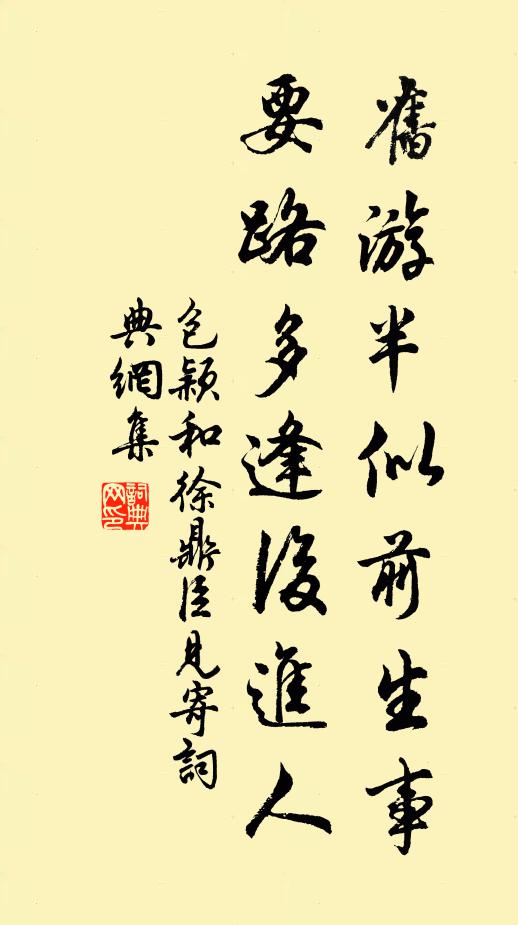 舊游半似前生事
要路多逢後進人
包穎和徐鼎臣見寄詞
典網集
詞典網印